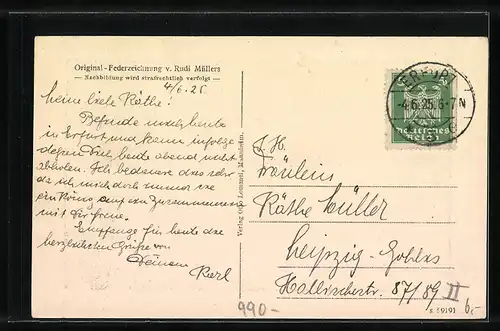 Original-Federzeichnung v. Rudi Müllers
— Nachbildung wird strafrechtlich verfolgt —
4/6.25
Meine liebe Käthe!
Befinde mich heute
in Erfurt und kann infolge
dessen Dich heute abend nicht
abholen. Ich bedauere dies sehr
da ich mich doch immer
auf ein Zusammensein
mit Dir freue.
Empfange für heute die
herzlichsten Grüße von
Deinem Karl
Verlag Otto Lommel, Mannheim.
ERFURT
-4.6.25.6-7N
Deutsches
Reich
S. H.
Fräulein
Käthe Müller
Leipzig-Gohlis
Hallischestr. 87/89 II
S 59191
990-
6,-